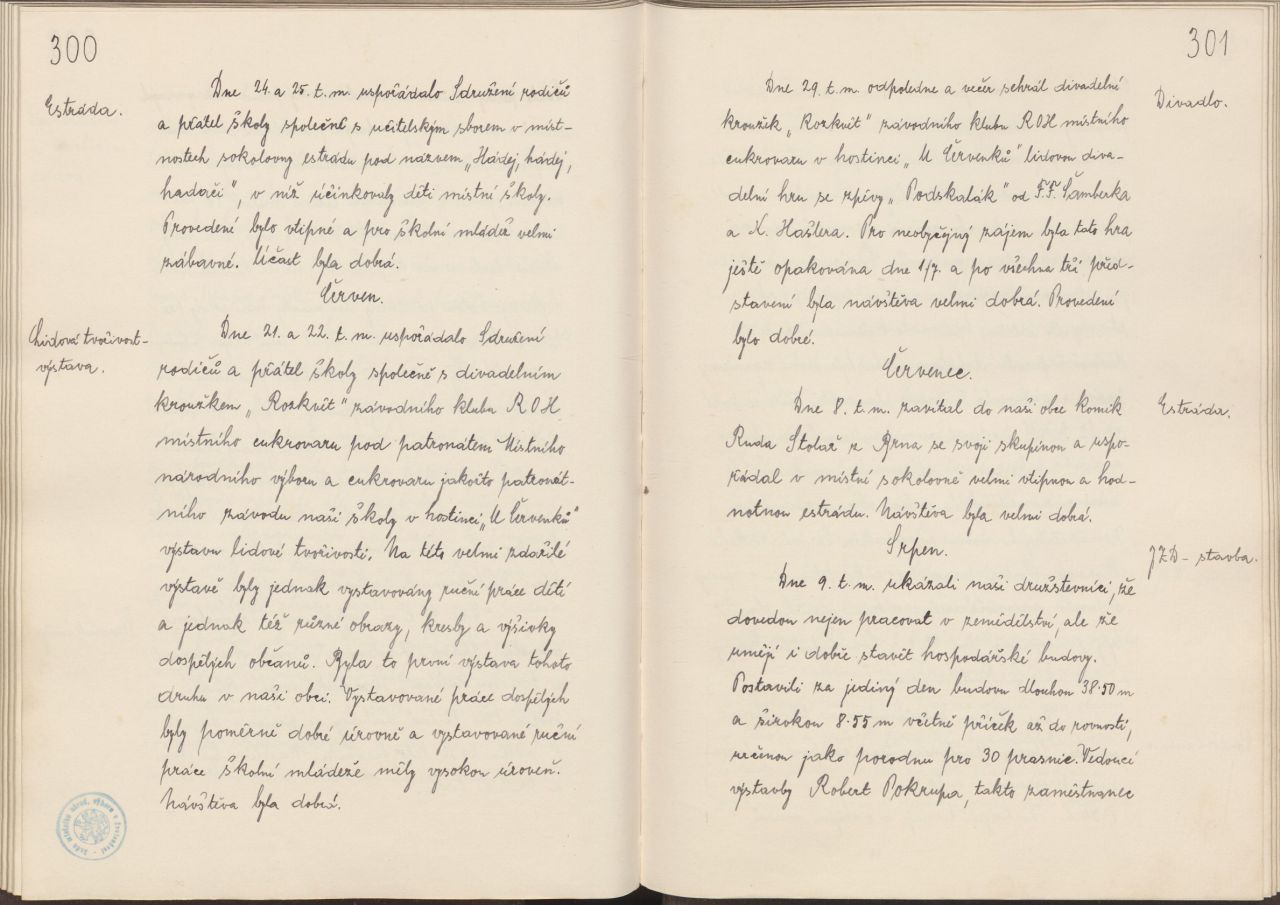 300
Estráda.
Dne 24. a 25. t. m. uspořádalo Sdružení rodičů
a přátel školy společně s učitelským sborem v míst-
nostech sokolovny estrádu pod názvem „Hádej, hádej,
hadači“, v níž účinkovaly děti místní školy.
Provedení bylo vtipné a pro školní mládež velmi
zábavné. Účast byla dobrá.
Červen.
Lidová tvořivost-
výstava.
Dne 21. a 22. t. m. uspořádalo Sdružení
rodičů a přátel školy společně s divadelním
kroužkem „Rozkvět“ závodního klubu ROH
místního cukrovaru pod patronátem Místního
národního výboru a cukrovaru jakožto patronát-
ního závodu naší školy v hostinci „U Červenků“
výstavu lidové tvořivosti. Na této velmi zdařilé
výstavě byly jednak vystavovány ruční práce dětí
a jednak též různé obrazy, kresby a výšivky
dospělých občanů. Byla to první výstava tohoto
druhu v naší obci. Vystavované práce dospělých
byly poměrně dobré úrovně a vystavované ruční
práce školní mládeže měly vysokou úroveň.
Návštěva byla dobrá.
301
Divadlo.
Dne 29. t. m. odpoledne a večer sehrál divadelní
kroužek „Rozkvět“ závodního klubu ROH místního
cukrovaru v hostinci „U Červenků“ lidovou diva-
delní hru se zpěvy „Podskalák“ od F. F. Šamberka
a K. Hašlera. Pro neobyčejný zájem byla tato hra
ještě opakována dne 1/7. a po všechna tři před-
stavení byla návštěva velmi dobrá. Provedení
bylo dobré.
Červenec.
Estráda.
Dne 8. t. m. zavítal do naší obce komik
Ruda Stolař z Brna se svojí skupinou a uspo-
řádal v místní sokolovně velmi vtipnou a hod-
notnou estrádu. Návštěva byla velmi dobrá.
Srpen.
JZD - stavba.
Dne 9. t. m. ukázali naši družstevníci, že
dovedou nejen pracovat v zemědělství, ale že
umějí i dobře stavět hospodářské budovy.
Postavili za jediný den budovu dlouhou 38·50 m
a širokou 8·55 m včetně příček až do rovnosti,
určenou jako porodnu pro 30 prasnic. Vedoucí
výstavby Robert Pokrupa, takto zaměstnanec